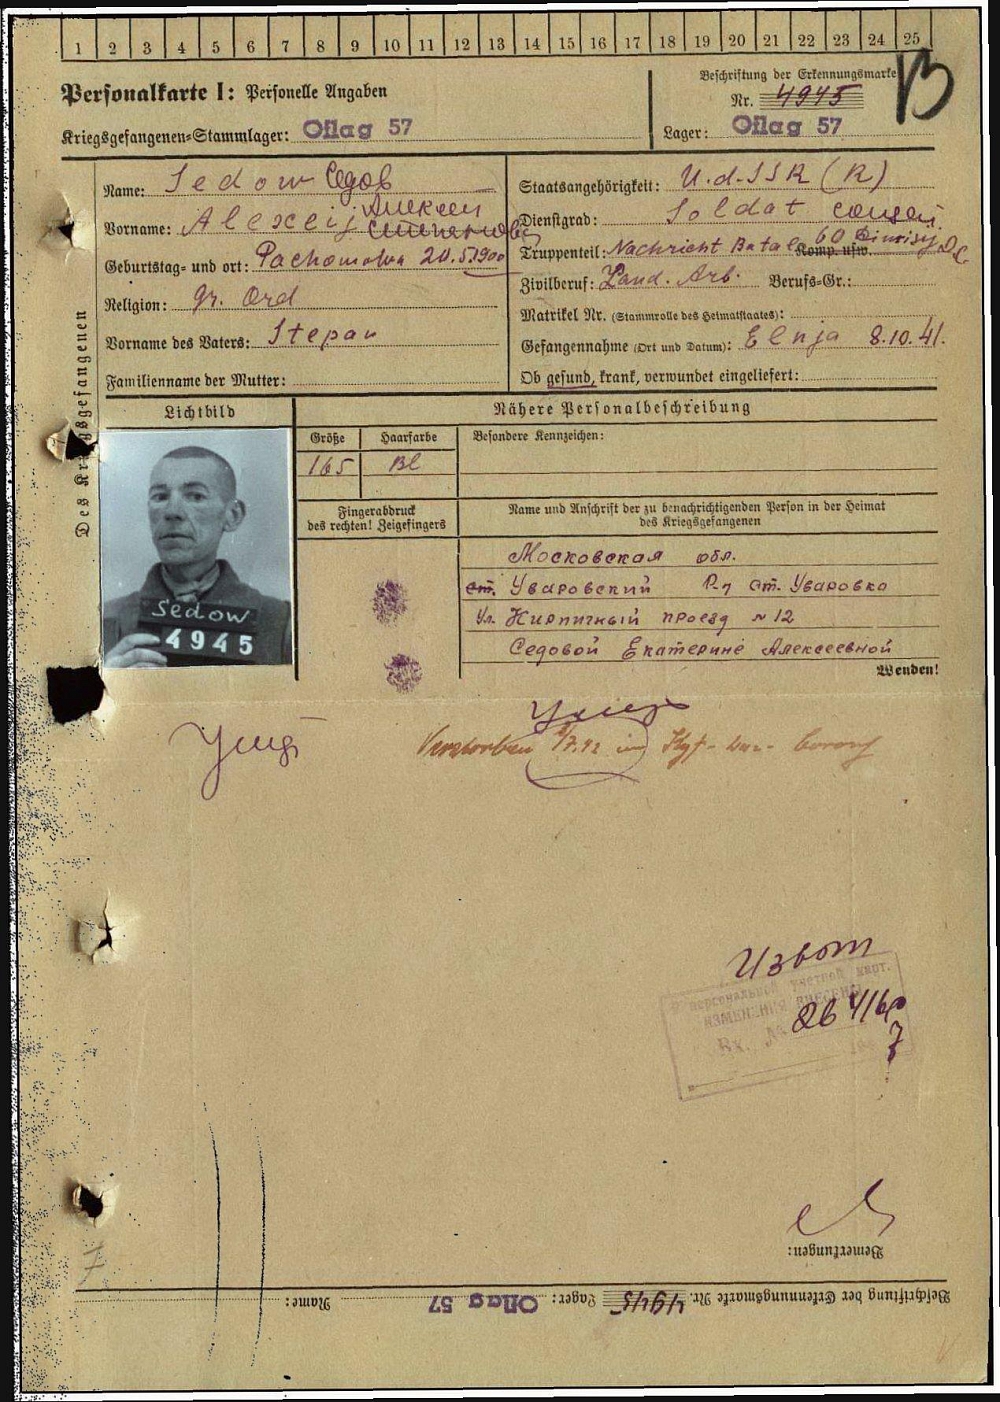 1 2 3 4 5 6 7 8 9 10 11 12 13 14 15 16 17 18 19 20 21 22 23 24 25
Personalkarte I: Personelle Angaben
Kriegsgefangenen-Stammlager: Oflag 57
Beschriftung der Erkennungsmarke
Nr. 4945
Lager: Oflag 57
B
Des Kriegsgefangenen
Name: Sedow Седов
Vorname: Alexeij Алексей
Geburtstag- und ort: Pachomowa 20.5.1900
Religion: gr. Ord
Vorname des Vaters: Stepan
Familienname der Mutter:
Staatsangehörigkeit: U.d.SSR (R)
Dienstgrad: Soldat
Truppenteil: Nachricht Batal. 60 Komp. usw.
Zivilberuf: Land. Arb. Berufs-Gr.:
Matrikel Nr. (Stammrolle des Heimatstaates):
Gefangennahme (Ort und Datum): Elnja 8.10.41.
Ob gesund, krank, verwundet eingeliefert:
Lichtbild
Nähere Personalbeschreibung
Größe Haarfarbe Besondere Kennzeichen:
165 Bl
Fingerabdruck
des rechten! Zeigefingers
Name und Anschrift der zu benachrichtigenden Person in der Heimat
des Kriegsgefangenen
Московская обл.
ст. Уваровский Р-н ст. Уваровка
Ул. Кирпичный проезд №12
Седовой Екатерине Алексеевной
Wenden!
Sedow
4945
Verstorben
персональной учетной карт.
ИЗМЕНЕНИЯ ВНЕСЕНЫ
Вх. №
Bemerkungen:
Beschriftung der Erkennungsmarke Nr. 4945 Lager: Oflag 57 Name: